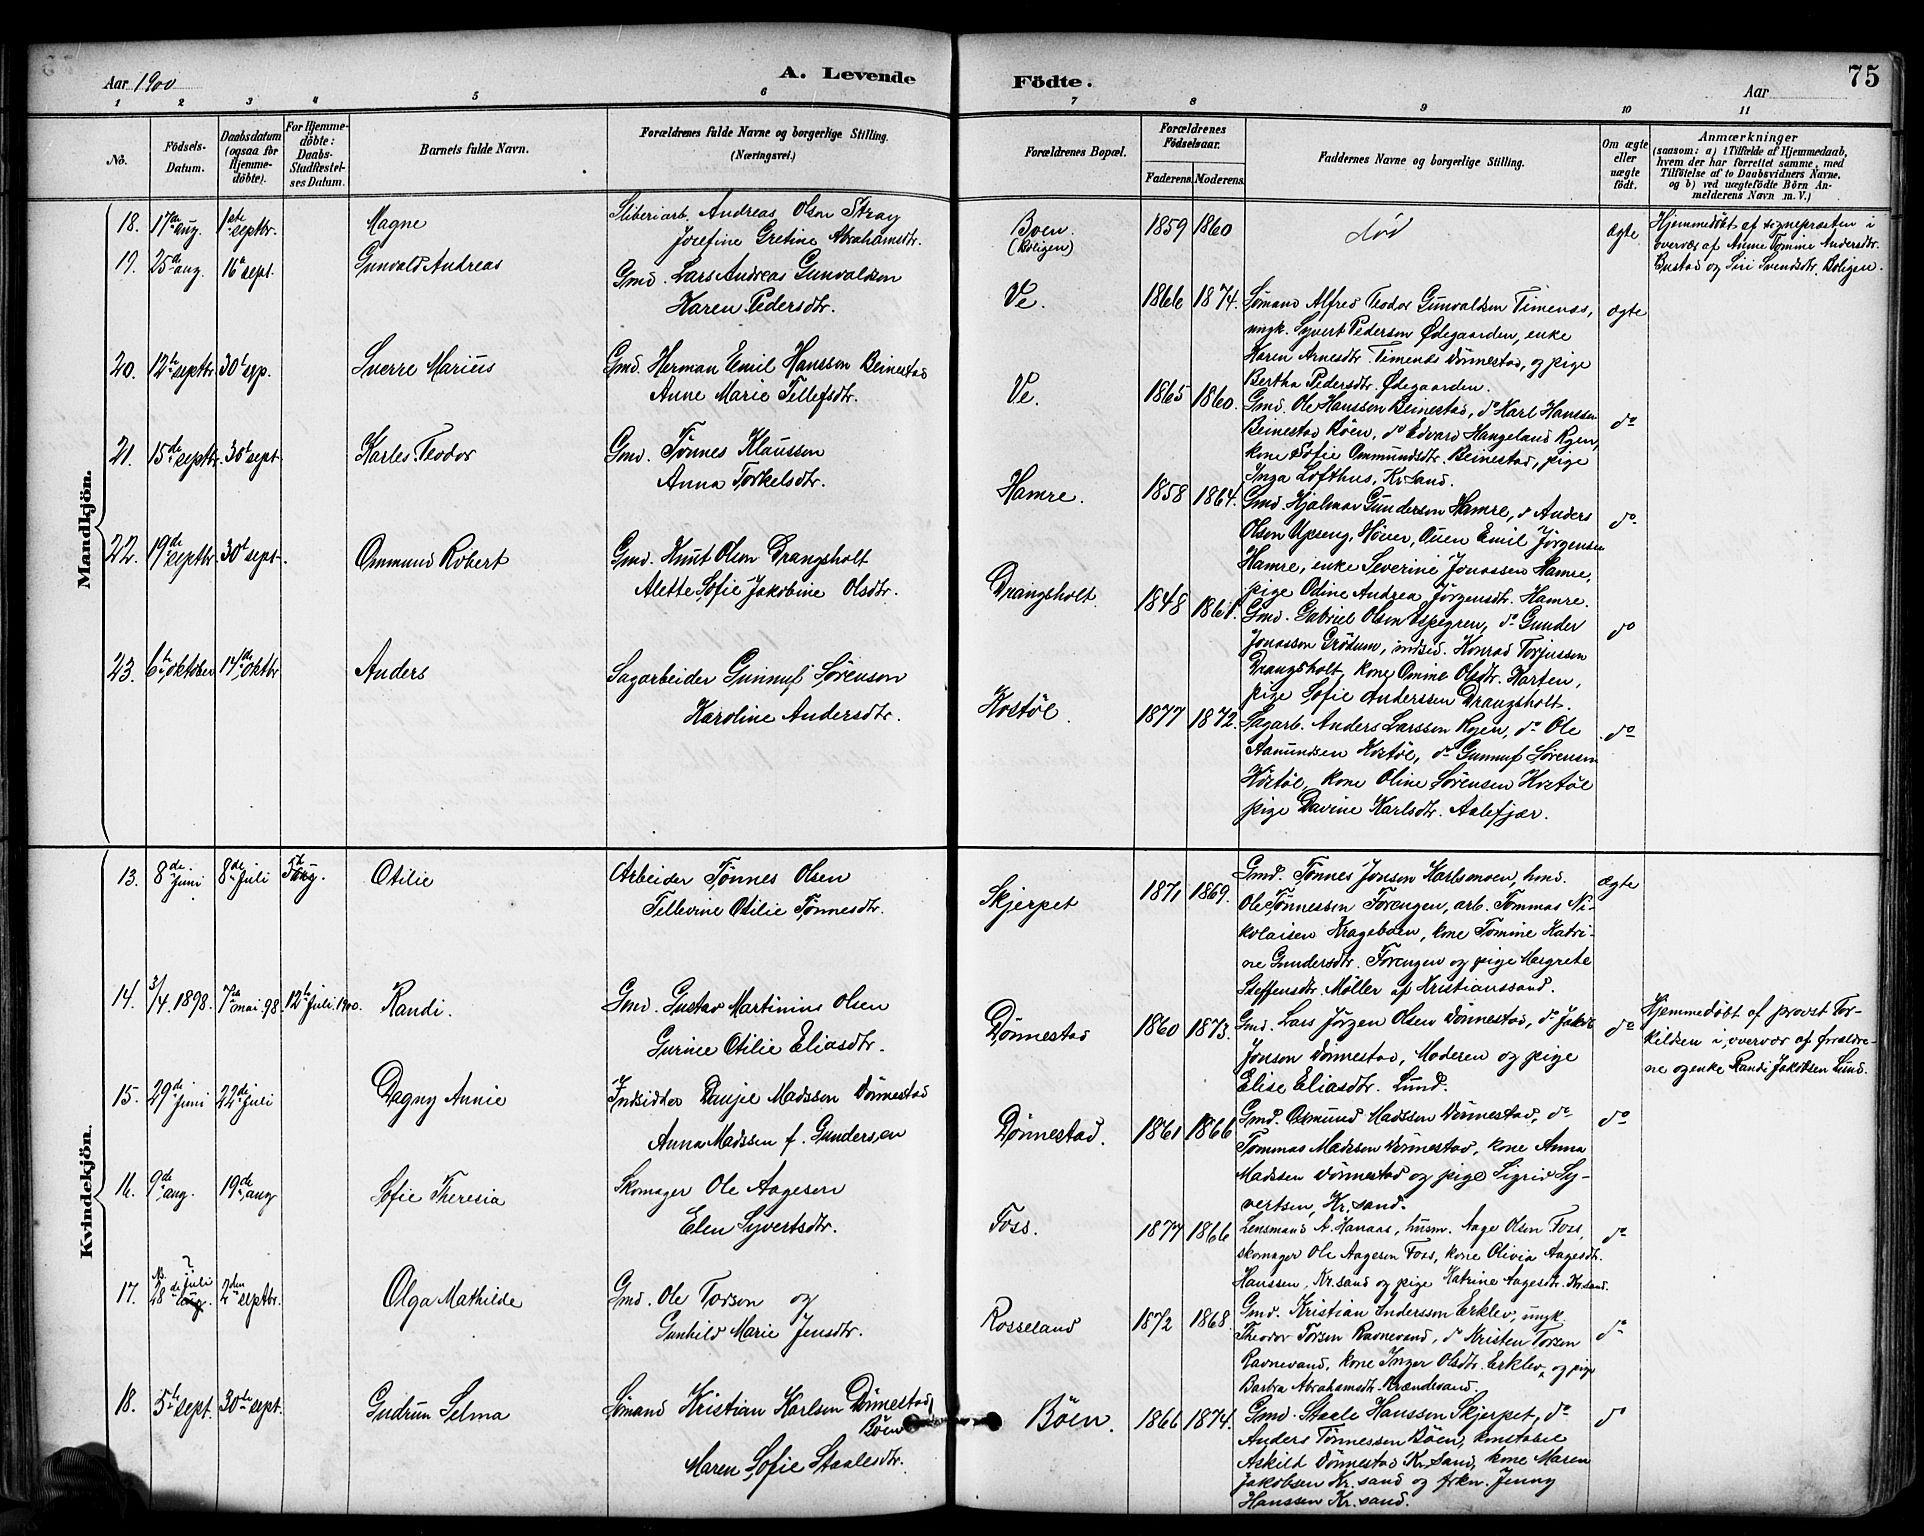 Aar 1900
A. Levende
Födte.
Aar
75
1 2 3 4 5 6 7 8 9 10 11
No.
Födsels-
Datum.
Daabsdatum
(ogsaa for
Hjemme-
döbte).
For Hjemme-
döbte:
Daabs-
Stadfæstel-
ses Datum.
Barnets fulde Navn.
Forældrenes fulde Navne og borgerlige Stilling.
(Næringsvei.)
Forældrenes Bopæl.
Forældrenes
Födselsaar.
Faderens. Moderens.
Faddernes Navne og borgerlige Stilling.
Om ægte
eller
uægte
födt.
Anmærkninger
(saasom: a) i Tilfælde af Hjemmedaab,
hvem der har forrettet samme, med
Tilföielse af to Daabsvidners Navne.
og b) ved uægtefödte Börn An-
melderens Navn m. V.)
Mandkjön.
18. 17de aug. 1ste septbr. Magne
Andreas Olsen Stray
Josefine Gretine Abrahamsdtr.
Boen.
(Boligen)
1859 1860
død
ægte
Hjemmedøbt af sognepræsten i
overvær af Anne Tomine Andersdtr.
Bustad og Siri Svendsdtr. Boligen.
19. 25de aug. 16de sept. Gunvald Andreas
Gmd. Lars Andreas Gunvaldsen
Karen Pedersdtr.
Ve.
1866 1874.
Sømand Alfred Teodor Gunvaldsen Timenes,
ungk. Syvert Pedersen Ødegaarden, enke
Karen Arnesdtr. Timenes Dønnestad, og pige
Bertha Pedersdtr. Ødegaarden.
ægte
20. 12te septbr. 30te sep. Sverre Marius
Gmd. Herman Emil Hansson Beinestad
Anne Marie Tellefsdtr.
Ve.
1865 1860.
Gmd. Ole Hanssen Beinestad, do Karl Hanssen
Beinestad Böen, do Edvard Hangeland Ryen,
kone Sofie Ommundsdtr. Beinestad, pige
Inga Lofthus, Kr.sand.
do
21. 15de septbr. 30te sept Karles Teodor
Gmd. Tønnes Klausson
Anna Torkelsdtr.
Hamre.
1858 1864.
Gmd. Hjalmar Gunderson Hamre, do Anders
Olsen Upseng, Høvee, Emil Jørgensen
Hamre, enke Severine Jonassen Hamre,
pige Odine Andrea Jørgensdtr. Hamre.
do
22. 19de septbr. 30te sept. Ommund Robert
Gmd. Knut Olsen Drangsholt
Alette Sofie Jakobine Olsdtr.
Drangsholt.
1848 1861.
Gmd. Gabriel Olsen Espegren, do Gunder
Jonassen Grödum, indsid. Konrad Torjussen
Drangsholt, kone Omine Olsdtr. Harten,
pige Sofie Anderssen Drangsholt.
do
23. 6te oktober 14de oktbr Anders
Sagarbeider Gunnuf Sørenson
Karoline Andersdtr.
Kostøl.
1877 1872.
Sagarb. Anders Larsson Ryen, do Ole
Aamundsen Kostøl, do Gunnuf Sørensen
Kostøl, kone Oline Sørensen Kostøl
pige Davine Karlsdtr. Aalefjær.
do
Kvindekjön.
13. 8de Juni 8de Juli 5te Aug. Otilie
Arbeider Tønnes Olsen
Tellevine Otilie Tønnesdtr.
Skjerpet
1871 1869.
Gmd. Tønnes Jonsen Karlsmoen, hmd.
Ole Tønnessen Forengen, arb. Tommas Ni-
kolaisen Krageboen, kone Tomine Katri-
ne Gundersdtr. Forengen og pige Margrete
Steffensdtr. Møller af Kristianssand.
ægte
14. 3/4 1898. 7de mai. 98. 12te juli 1900. Randi.
Gmd. Gustav Martinius Olsen
Gurine Otilie Eliasdtr.
Dønnestad
1860 1873.
Gmd. Lars Jörgen Olsen Dønnestad, do Jakob
Jonson Dønnestad, Moderen og pige
Elise Eliasdtr. Lund.
do
Hjemmedøbt af provst Tor-
kildsen i overvær af foræld-
ne og enke Randi Jakobsen Lund.
15. 29de Juni 22de Juli Dagny Annie
Indsidder Daniel Madssen Dønnestad
Anna Madssen f. Gundersen
Dønnestad.
1861 1866
Gmd. Osmund Madssen Dønnestad, do
Tommas Madssen Dønnestad, kone Anna
Madssen Dønnestad og pige Sigrid Sy-
vertsen, Kr.sand.
do
16. 9de aug. 19de aug Sofie Theresia
Skomager Ole Aagesen
Elen Syvertsdtr.
Foss.
1877 1866
Lensmand A. Hanaas, husm. Aage Olsen Foss,
skomager Ole Aagesen Foss, kone Olivia Aagesdtr.
Hanssen, Kr.sand og pige Katrine Aagesdtr. Kr.sand.
do
17. 28de juli ? 2den septbr. Olga Mathilde
Gmd. Ole Torson og
Gunhild Marie Jensdtr.
Rosseland
1872 1868.
Gmd. Kristian Andersson Erklev, ungk.
Theodor Torsen Ravnevand, do Kristen Torsen
Ravnevand, kone Inger Olsdtr. Erklev, og pige
Barbra Abrahamsdtr.
do
18. 5te sept. 30te sept. Gudrun Selma
Sømand Kristian Karlsen Dønnestad
Böen
Maren Sofie Staalesdtr.
Böen.
1866 1874.
Gmd. Staale Hanssen Skjerpet, do
Anders Tønnessen Böen, konstabel
Askild Dønnestad Kr.sand, kone Maren
Jakobsen Kr.sand og frkn. Jenny
Hanssen Kr.sand.
do